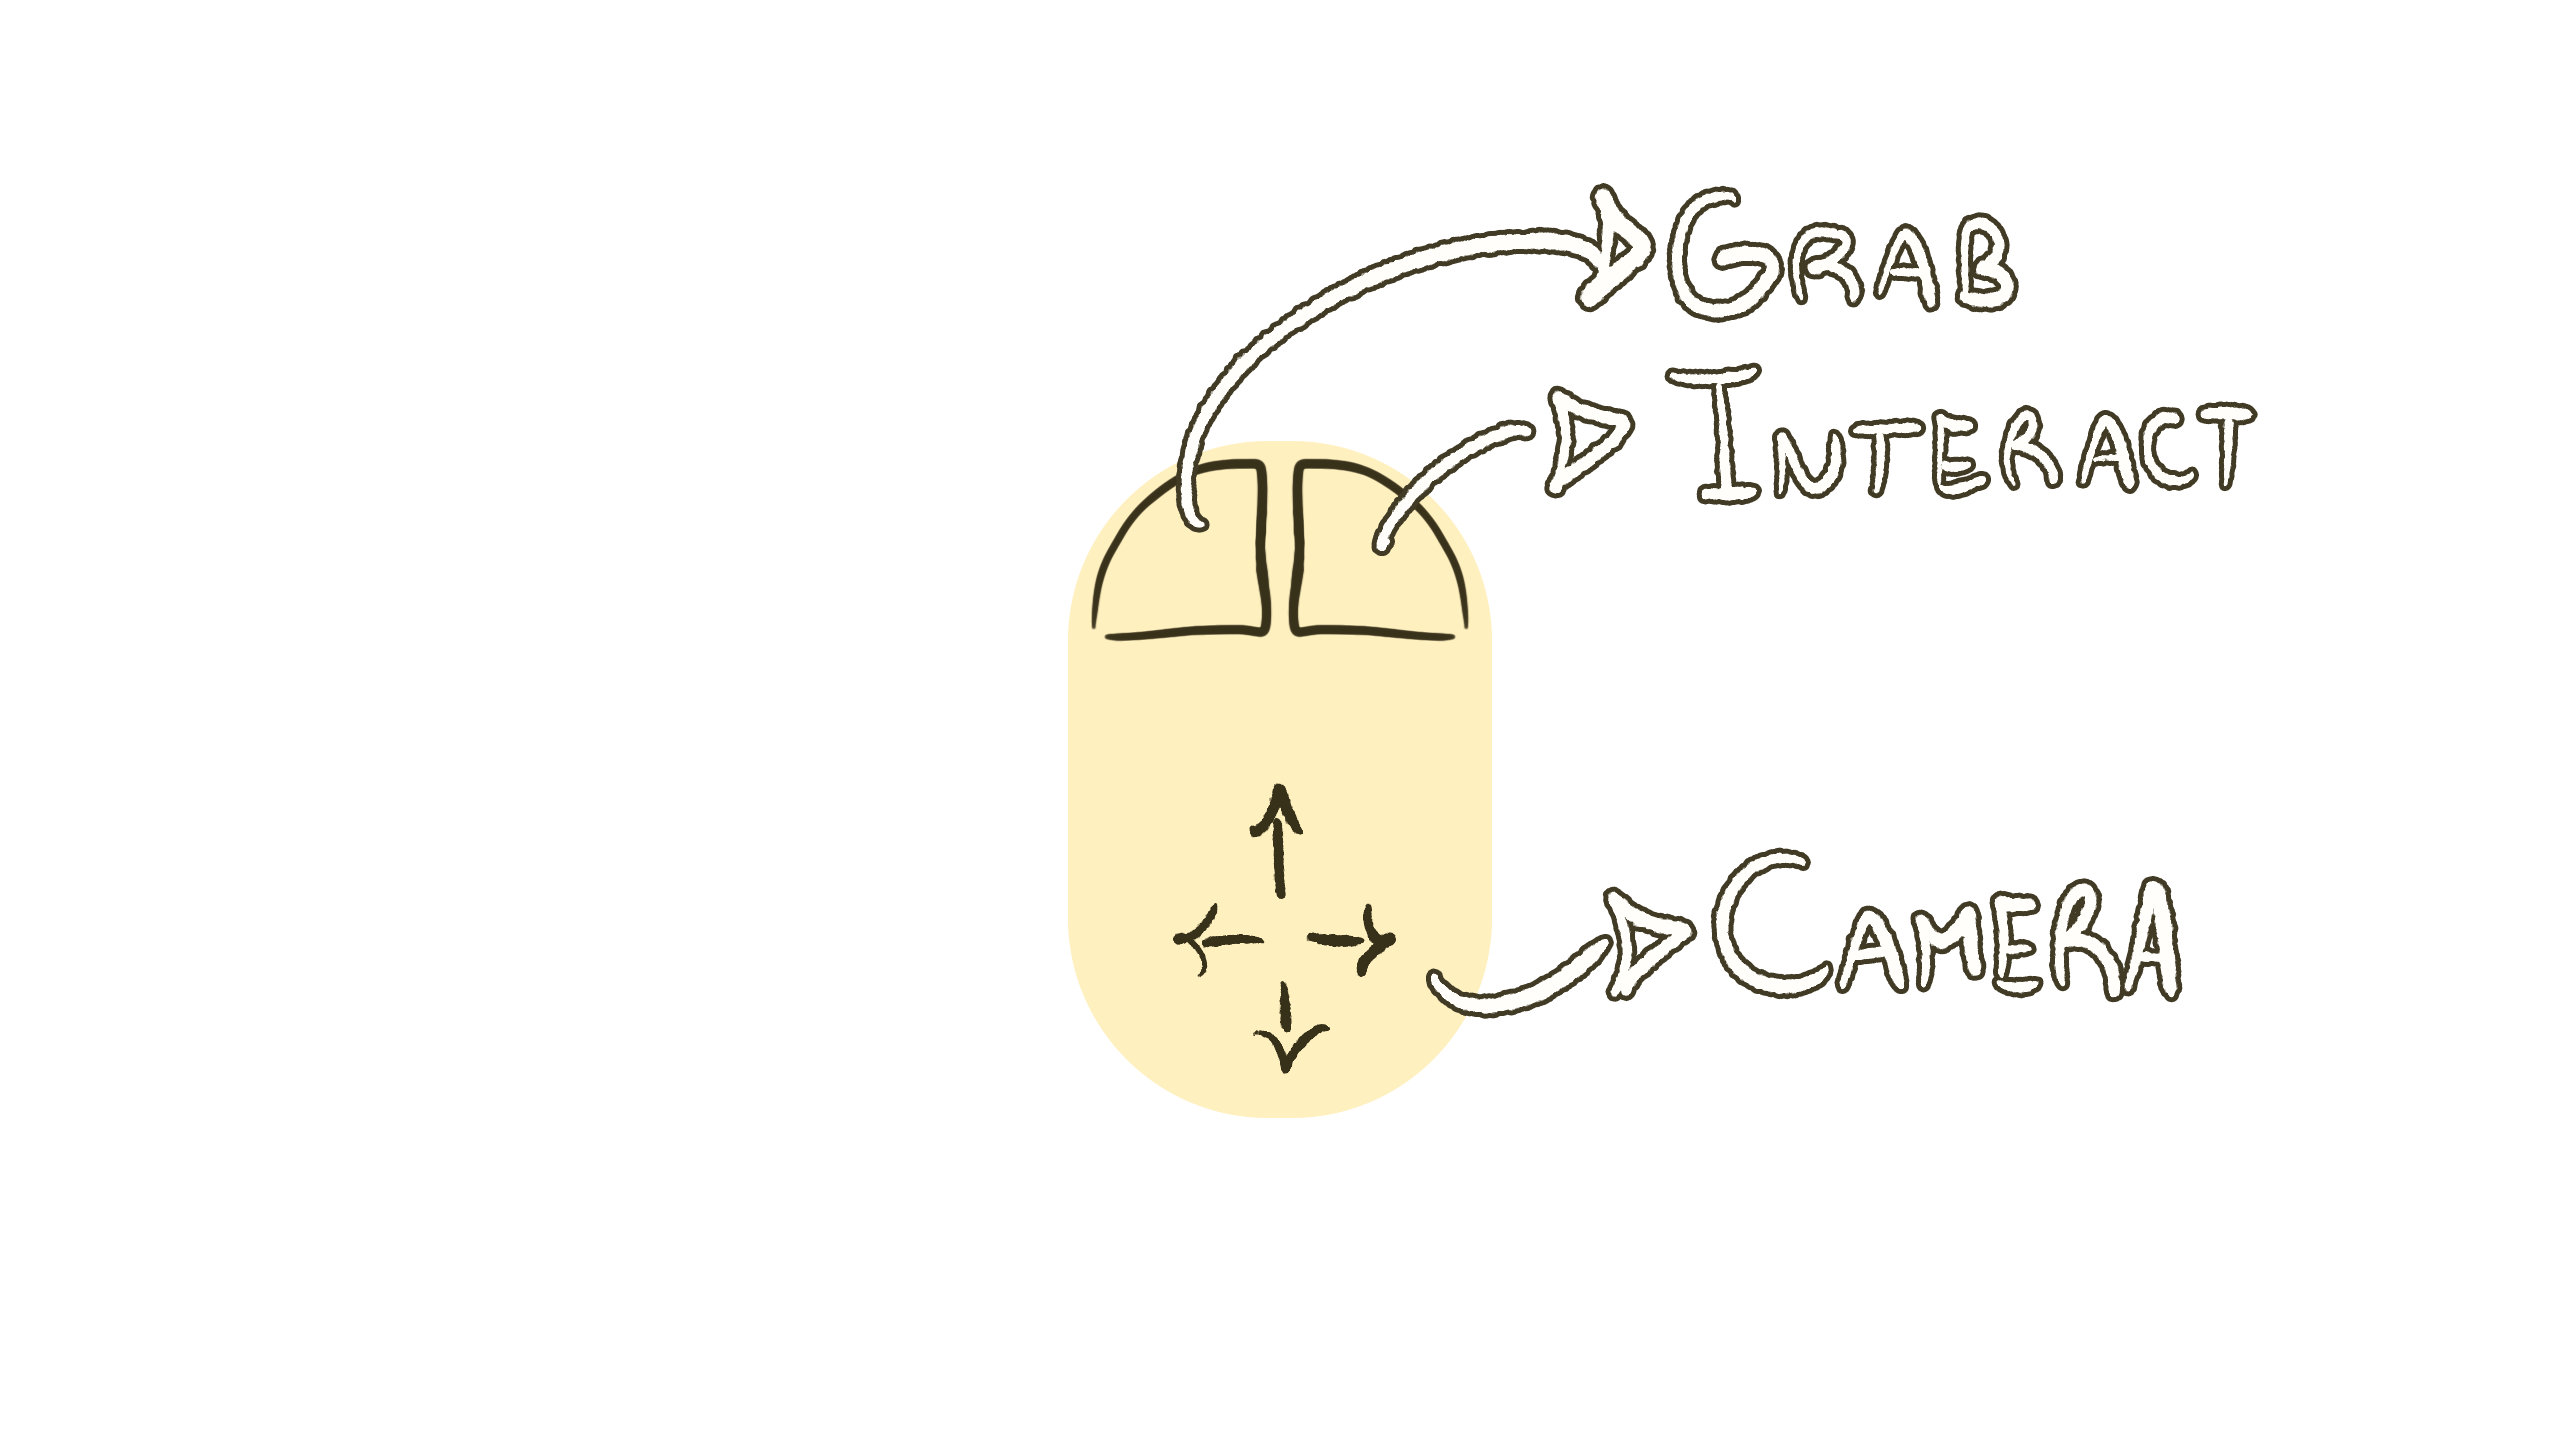 GRAB
INTERACT
CAMERA